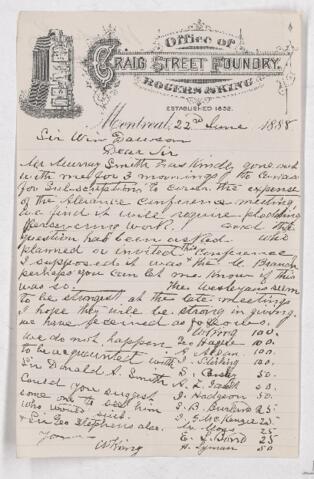 Office of
CRAIG STREET FOUNDRY.
ROGERS & KING
ESTABLISHED 1852.
Montreal, 22nd June 1888
Sir Wm Dawson
Dear Sir
Mr Murray Smith has kindly gone out
with me for 3 mornings to canvass
for Subscriptions to cover the expense
of the Alliance Conference meeting
we find it will require plodding
Persevering work. and the
question has been asked who
planned or invited this Conference
I supposed it was the M. Branch
perhaps you can let me know if this
was so. The Wesleyans seem
to be strongest at the late meetings
I hope they will be strong in giving.
we have received as follows. W King 100.
we do not happen Geo Hague 100.
to be acquainted with A Allan. 100.
Sir Donald A. Smith J. Stirling 100.
Could you suggest 50.
some one to see him A. F. Gault 50.
who would suit J. Hodgson 50.
& Sir Geo Stephens also. J. B. Burland 25
Yours J. G. McKenzie 25
W King 25
E. 25
H. Lyman 50